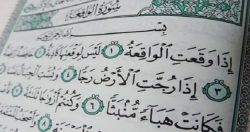 سُورَةُ الْوَاقِعَةِ
بِسْمِ
إِذَا وَقَعَتِ الْوَاقِعَةُ ١ لَيْسَ لِوَقْعَتِهَا
٣ إِذَا رُجَّتِ الْأَرْضُ رَجًّا ٤ وَبُسَّتِ
فَكَانَتْ هَبَاءً مُّنۢبَثًّا ٦ وَكُنتُمْ أَزْوَ